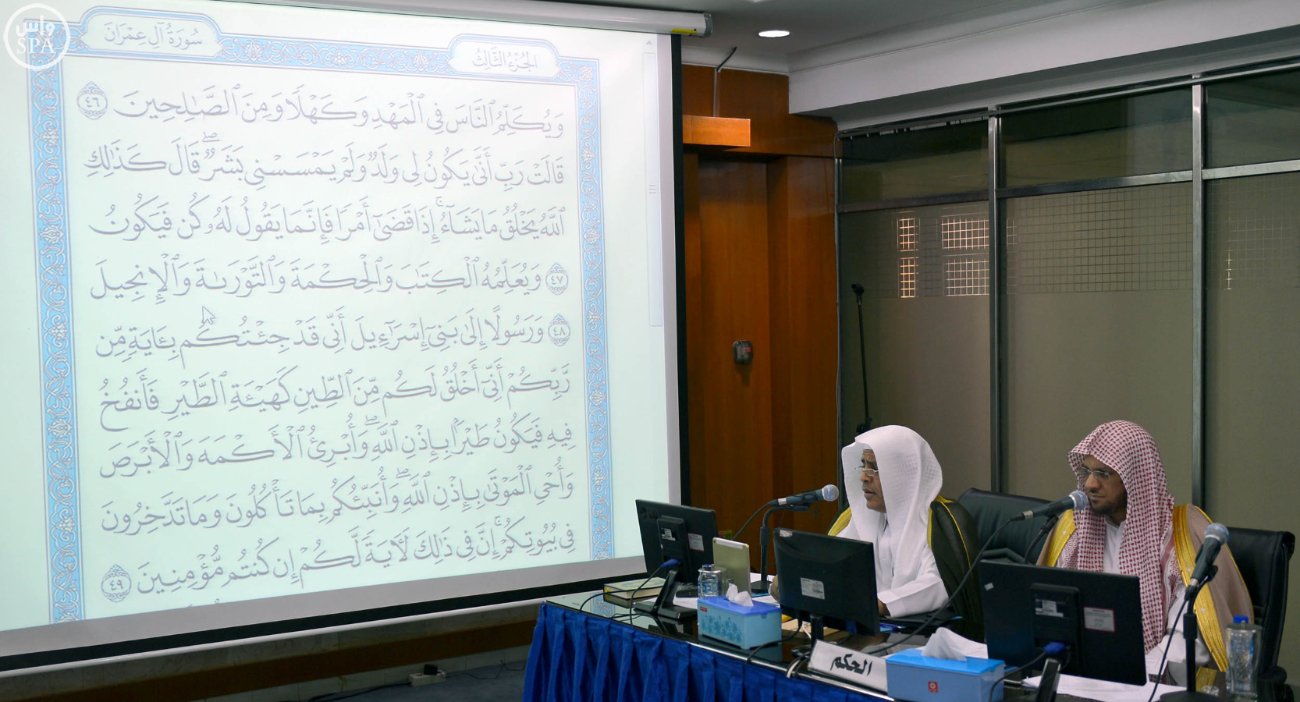 واس
SPA
سُورَةُ آلِ عِمْرَانَ
الجُزْءُ الثَّالِثُ
وَيُكَلِّمُ ٱلنَّاسَ فِي ٱلْمَهْدِ وَكَهْلًا وَمِنَ ٱلصَّٰلِحِينَ ٤٦
قَالَتْ رَبِّ أَنَّىٰ يَكُونُ لِي وَلَدٌ وَلَمْ يَمْسَسْنِي بَشَرٌۖ قَالَ كَذَٰلِكِ
ٱللَّهُ يَخْلُقُ مَا يَشَآءُۚ إِذَا قَضَىٰٓ أَمْرًا فَإِنَّمَا يَقُولُ لَهُۥ كُن فَيَكُونُ
٤٧ وَيُعَلِّمُهُ ٱلْكِتَٰبَ وَٱلْحِكْمَةَ وَٱلتَّوْرَىٰةَ وَٱلْإِنجِيلَ
٤٨ وَرَسُولًا إِلَىٰ بَنِيٓ إِسْرَٰٓءِيلَ أَنِّي قَدْ جِئْتُكُم بِـَٔايَةٍ مِّن
رَّبِّكُمْ أَنِّيٓ أَخْلُقُ لَكُم مِّنَ ٱلطِّينِ كَهَيْـَٔةِ ٱلطَّيْرِ فَأَنفُخُ
فِيهِ فَيَكُونُ طَيْرًۢا بِإِذْنِ ٱللَّهِۖ وَأُبْرِئُ ٱلْأَكْمَهَ وَٱلْأَبْرَصَ
وَأُحْيِ ٱلْمَوْتَىٰ بِإِذْنِ ٱللَّهِۖ وَأُنَبِّئُكُم بِمَا تَأْكُلُونَ وَمَا تَدَّخِرُونَ
فِي بُيُوتِكُمْۚ إِنَّ فِي ذَٰلِكَ لَأٓيَةً لَّكُمْ إِن كُنتُم مُّؤْمِنِينَ ٤٩
الحكم